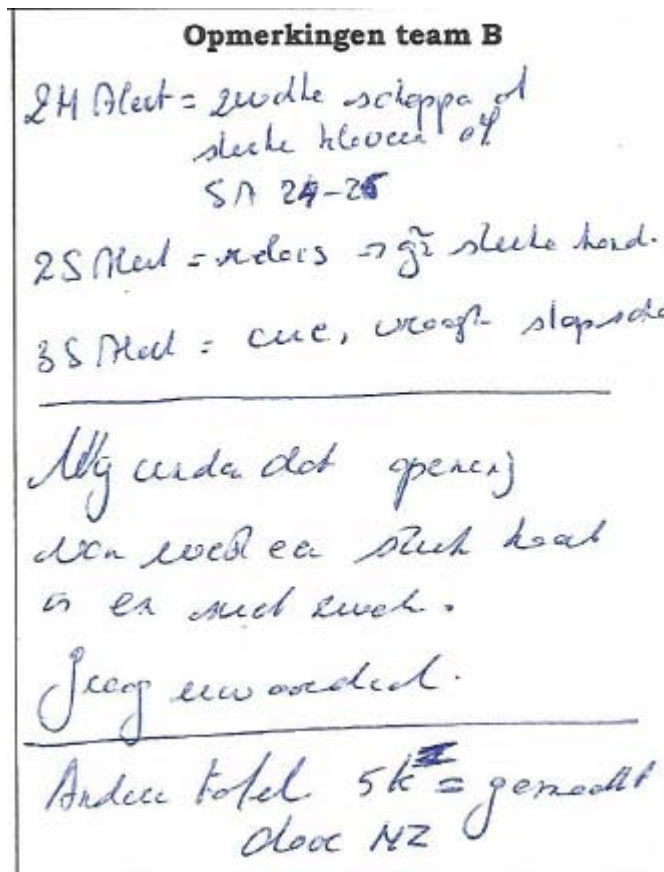 Opmerkingen team B
2H Alert = zwakke schoppen of
sterke klaveren of
SA 24-25
2S Alert = relais → gn sterke hand.
3S Alert = cue, vraagt
Wij vinden dat opening
van west een sterke hand
is en niet zwak.
Graag uw oordeel.
Andere tafel 5k = gemaakt
door NZ